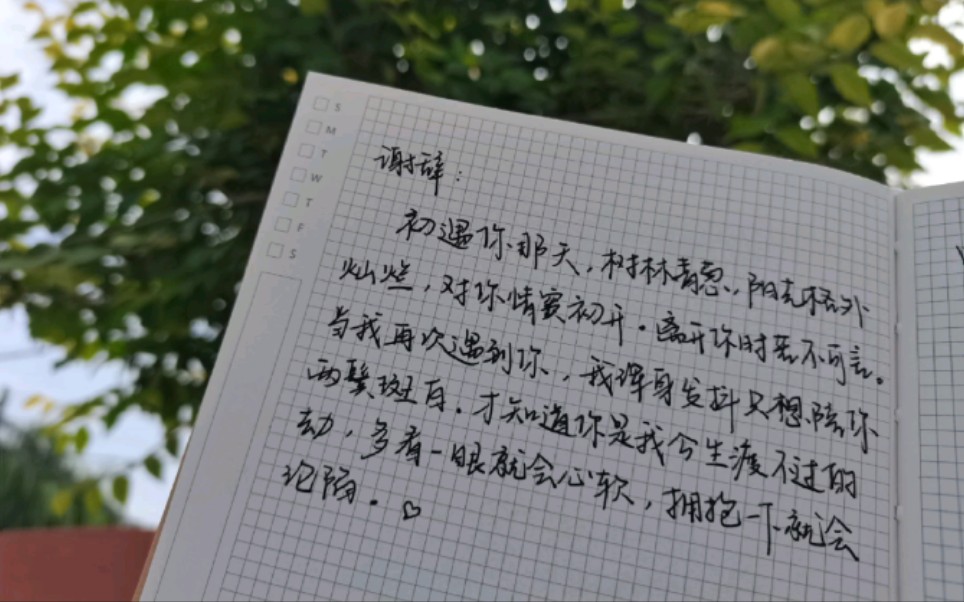 S
M
T
W
T
F
S
谢辞：
初遇你那天，树林青葱，阳光格外
灿烂，对你情窦初开。离开你时苦不可言。
当我再次遇到你，我浑身发抖只想陪你
两鬓斑白。才知道你是我今生渡不过的
劫，多看一眼就会心软，拥抱一下就会
沦陷。♡